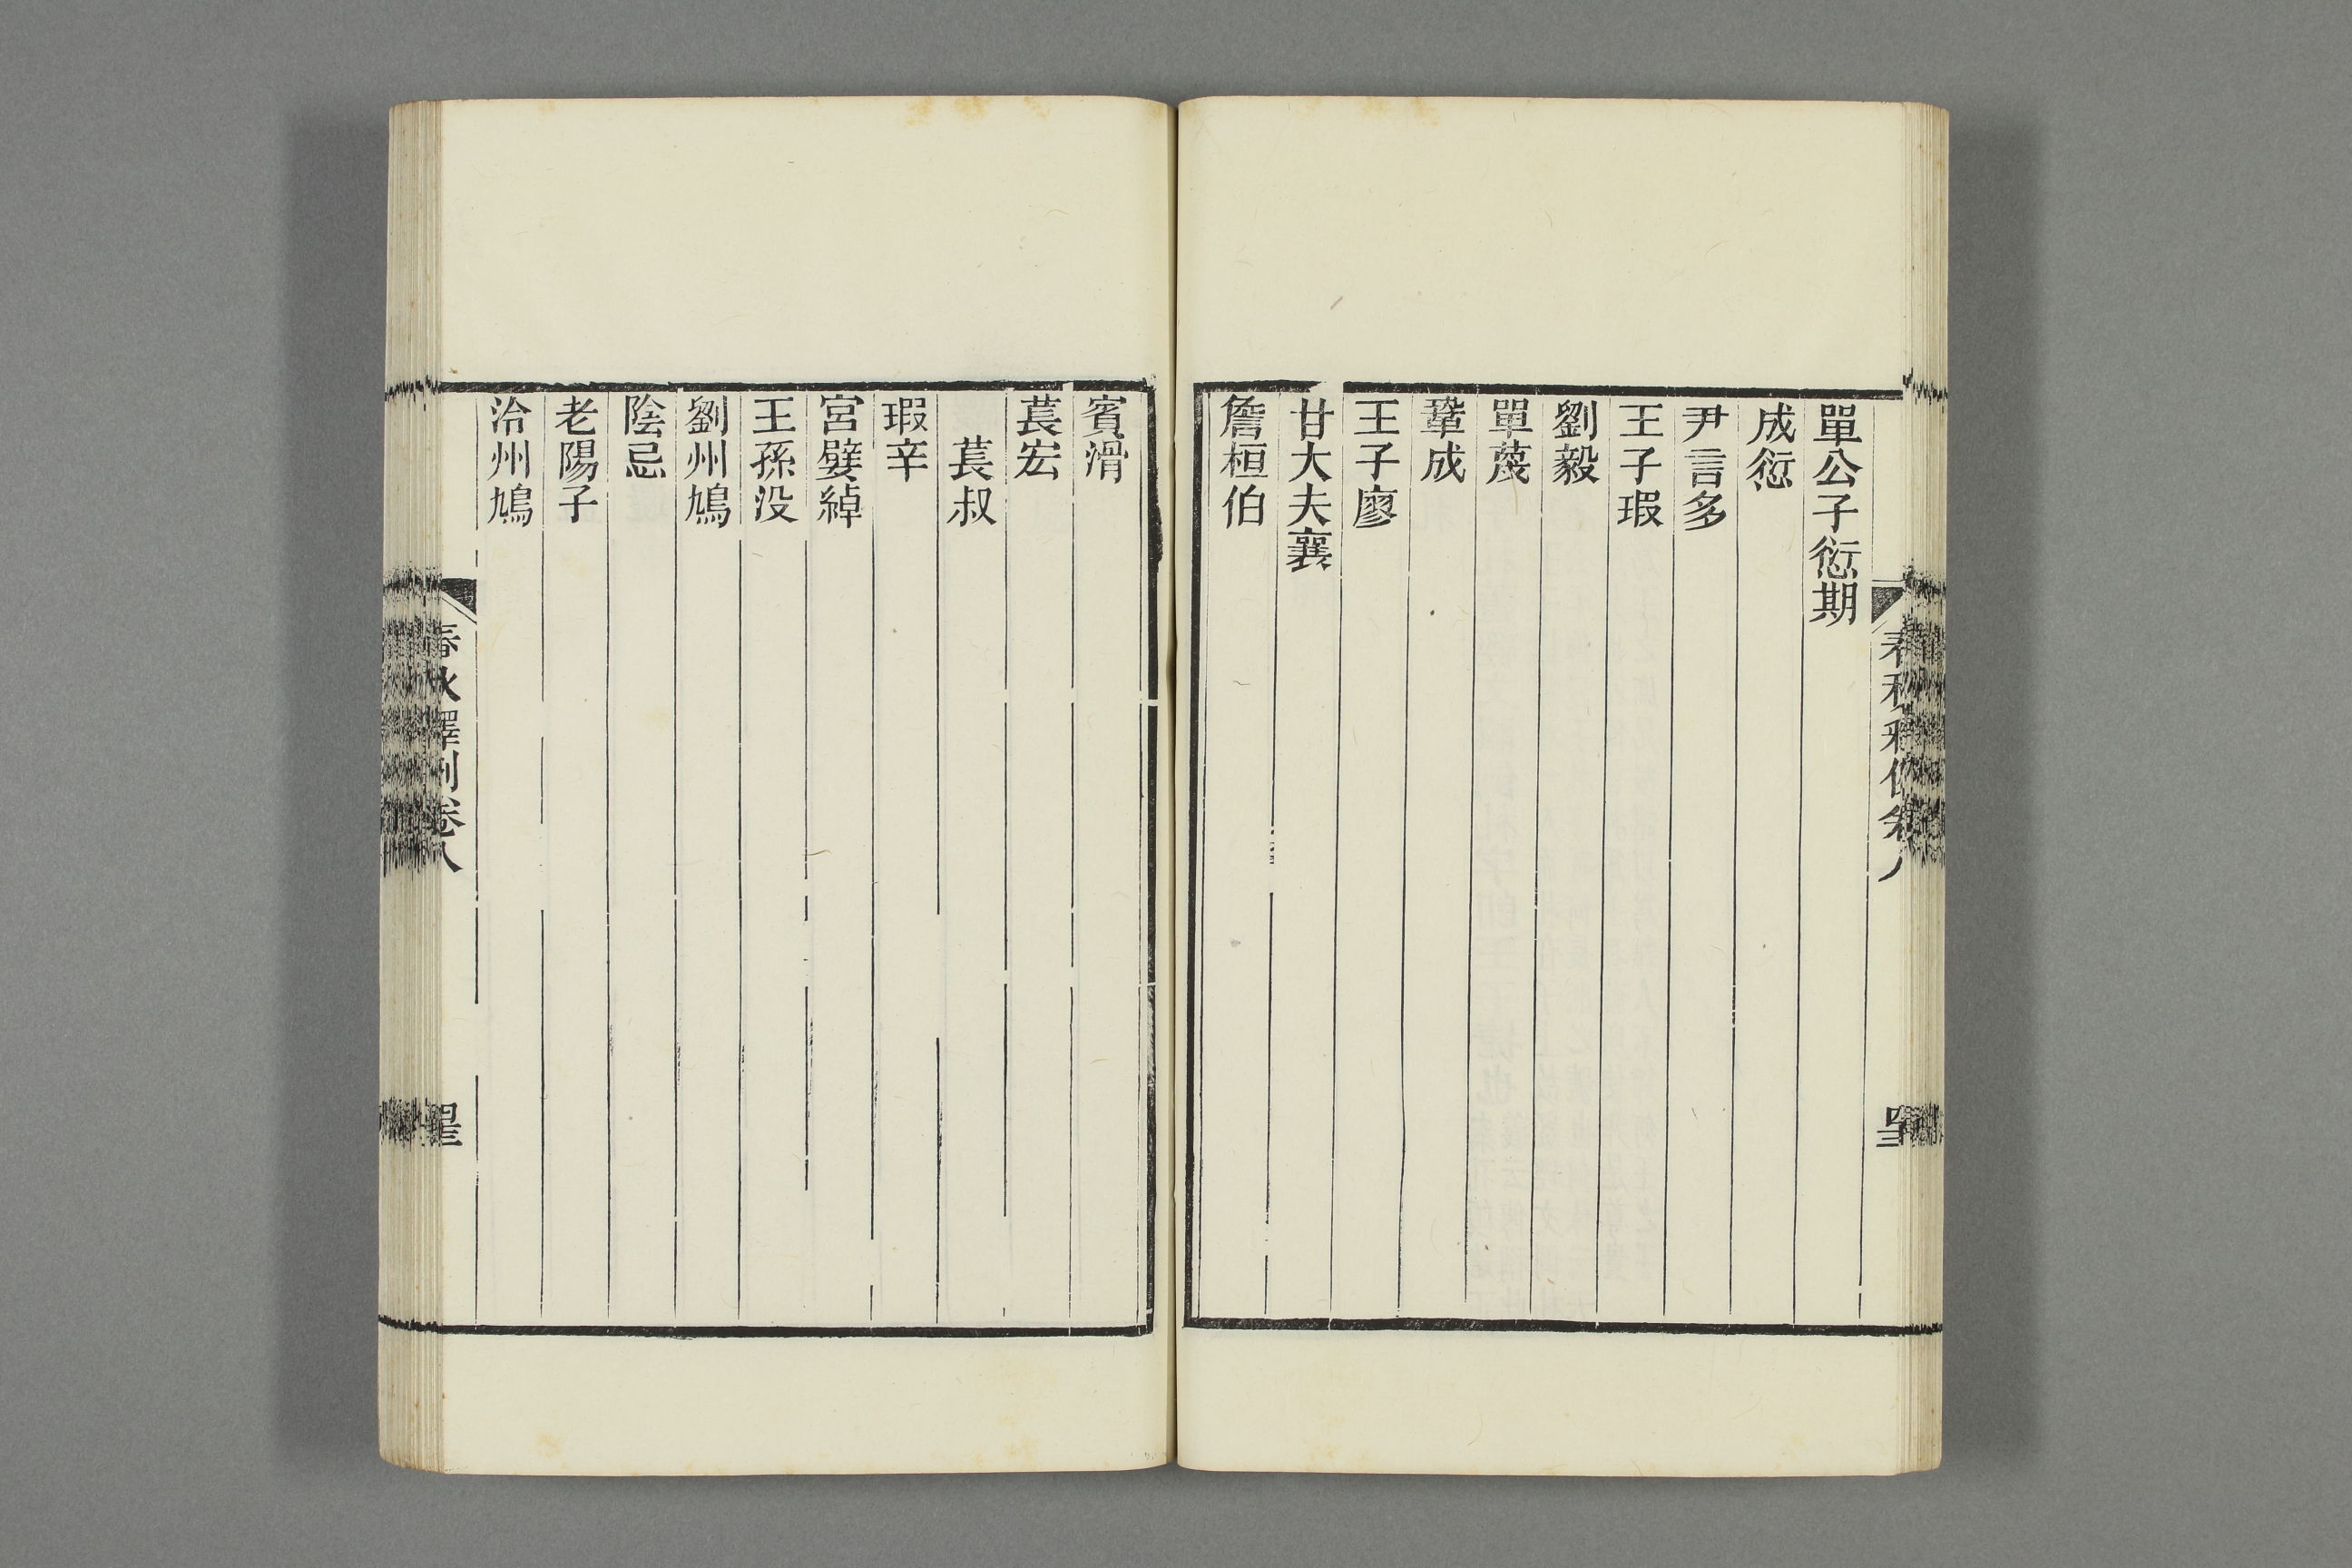 單公子愆期
成愆
尹言多
王子瑕
劉毅
單蔑
鞏成
王子廖
甘大夫襄
詹桓伯
賓滑
萇宏
萇叔
瑕辛
宮嬖綽
王孫没
劉州鳩
陰忌
老陽子
泠州鳩
春秋釋例卷八